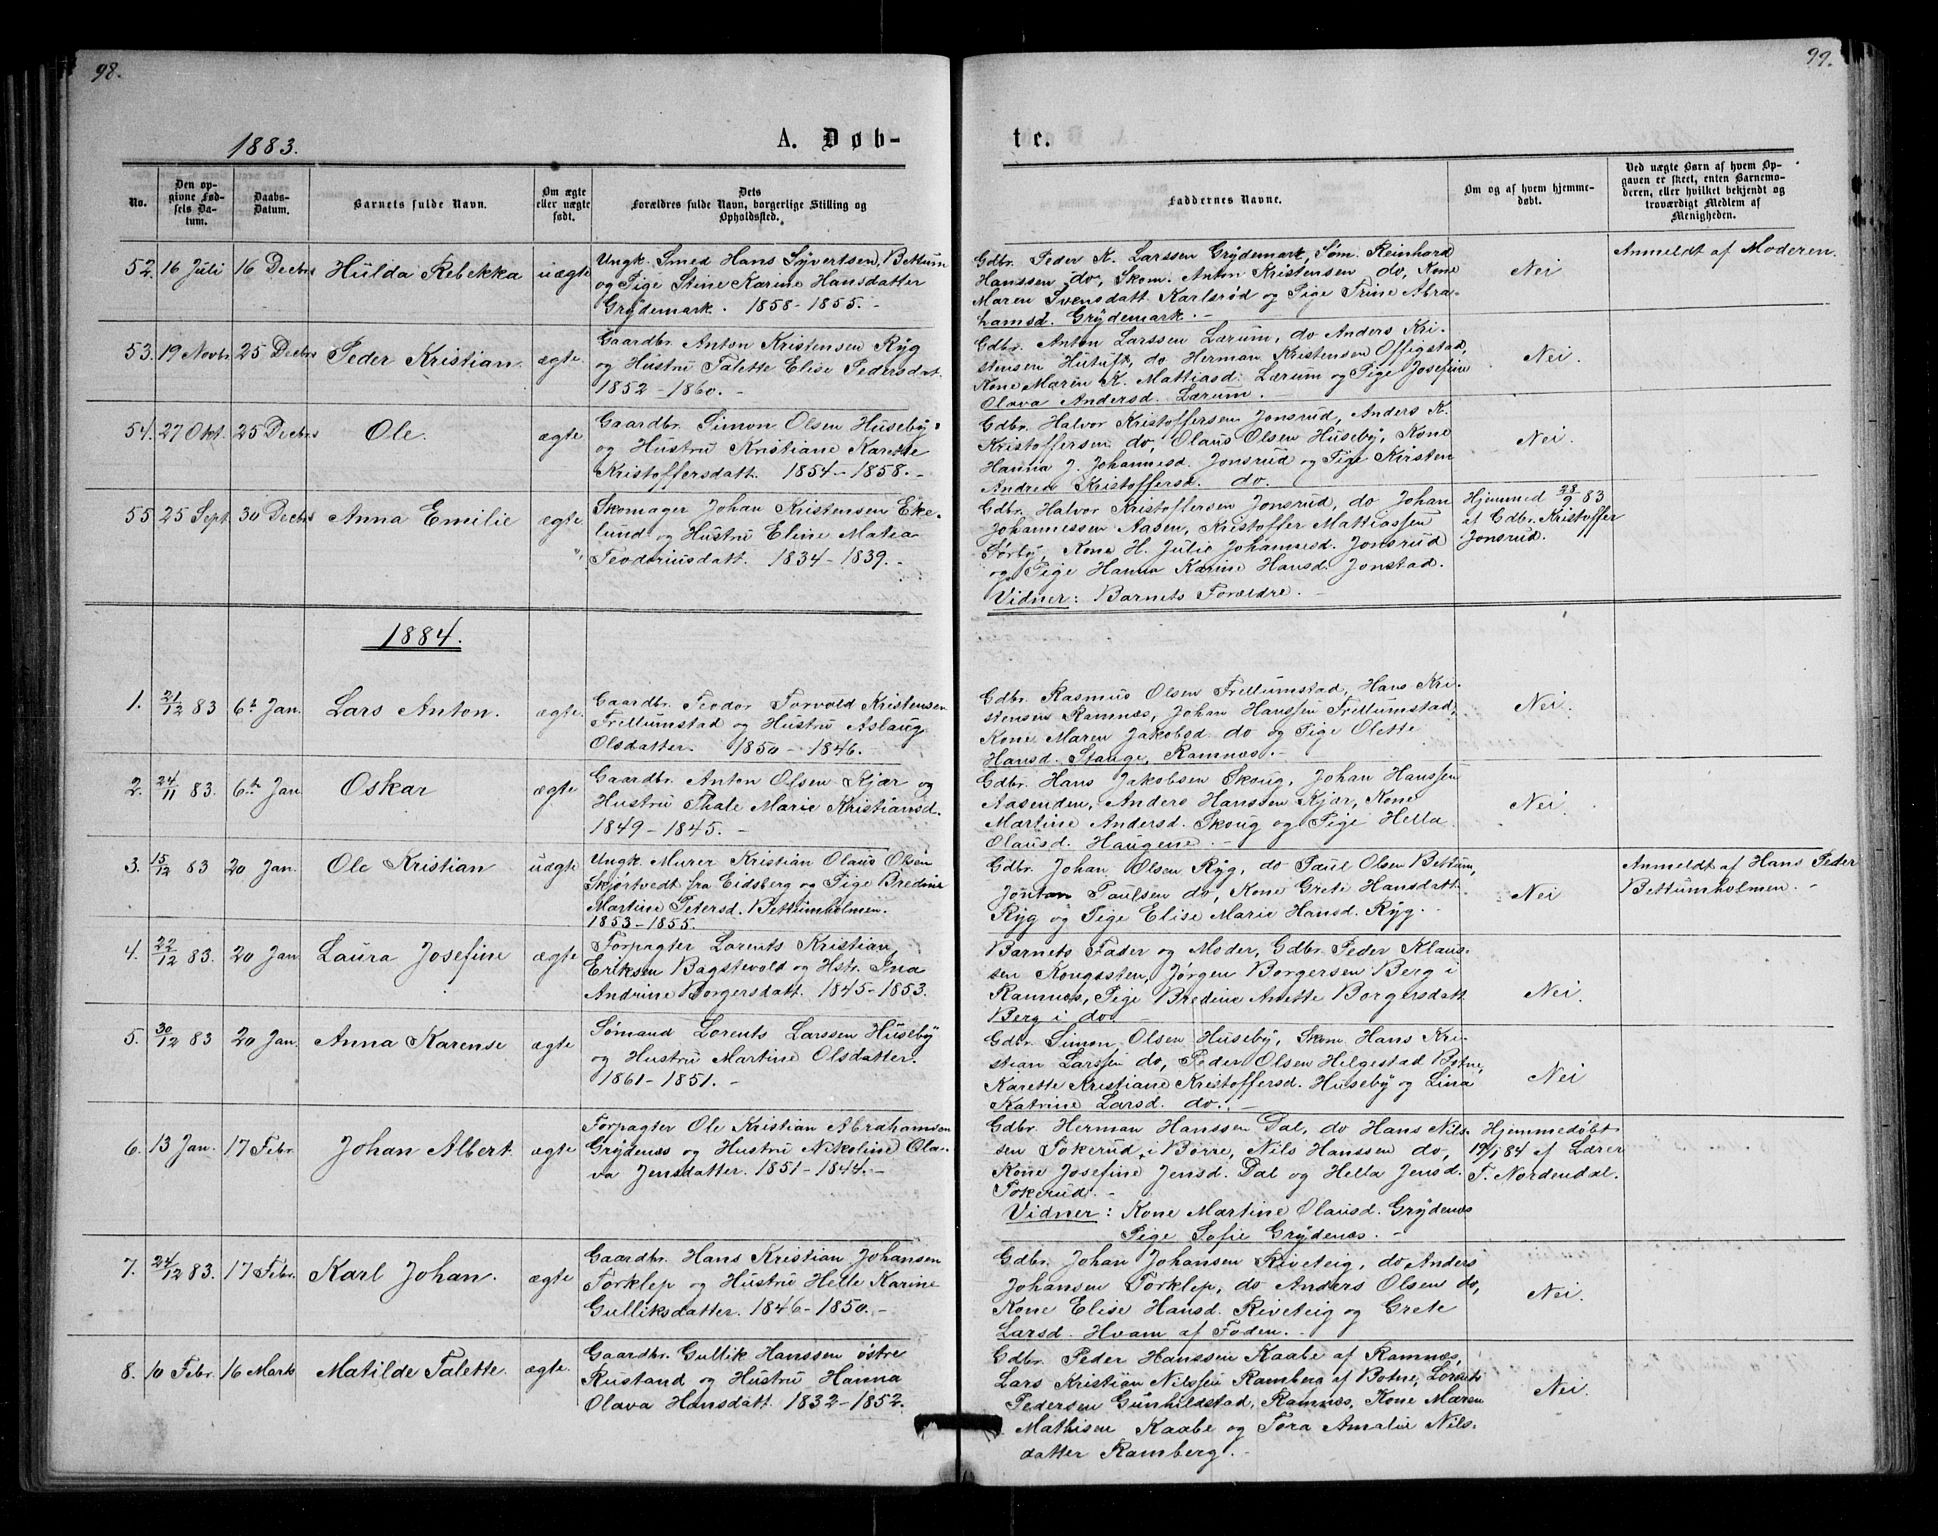 98.
99.
1883.
A. Døb-
te.
No.
Den op-
givne Fød-
sels Da-
tum.
Daabs-
Datum.
Barnets fulde Navn.
Om ægte
eller uægte
født.
Dets
Forældres fulde Navn, borgerlige Stilling og
Opholdssted.
Faddernes Navne.
Om og af hvem hjemme-
døbt.
Ved uægte Børn af hvem Op-
gaven er skeet, enten Barnemo-
deren, eller hvilket bekjendt og
troværdigt Medlem af
Menigheden.
52. 16 Juli 16 Decbr Hulda Rebekka uægte
Ungk. Smed Hans Syvertsen, Bettum
og Pige Stine Karine Hansdatter
Grydemark. 1858-1855.-
Gdbr. Peder K. Larssen Grydemark, Søm. Reinhard
Hanssen do, Skom. Anton Kristensen do, Kone
Maren Svensdatt. Karlsrød og Pige Trine Abra-
hamsd. Grydemark.-
Nei
Anmeldt af Moderen.
53. 19 Novbr. 25 Decbr Peder Kristian. ægte
Gaardbr. Anton Kristensen Ryg
og Hustru Talette Elise Pedersdat.
1852-1860.-
Gdbr. Anton Larssen Lærum, do Anders Kri-
stensen Hutvilt, do Herman Kristensen Offigstad,
Kone Maren K. Mattiasd. Lærum og Pige Josefine
Olava Andersd. Lærum.-
Nei.
54. 27 Okt. 25 Decbr Ole. ægte
Gaardbr. Simon Olsen Huseby
og Hustru Kristiane Karette
Kristoffersdatt. 1854-1858.-
Gdbr. Halvor Kristoffersen Jonsrud, Anders K.
Kristoffersen do, Olaus Olsen Huseby, Kone
Hanna J. Johannesd. Jonsrud og Pige Kirsten
Andrea Kristoffersd. do.
Nei.
55 25 Sept. 30 Decbr Anna Emilie ægte
Skomager Johan Kristensen Eke-
lund og Hustru Eline Matea
Teodoriusdatt. 1834-1839.-
Gdbr. Halvor Kristoffersen Jonsrud, do Johan
Johannessen Aasen, Kristoffer Mattiassen
Sørby, Kone H. Julie Johannesd. Jonsrud
og Pige Hanna Karine Hansd. Jonstad.
Vidner: Barnets Forældre.-
Hjemmed 28/9 83
af Gdbr. Kristoffer
Jonsrud.
1884.
1. 21/12 83 6te Jan. Lars Anton. ægte.
Gaardbr. Teodor Torvald Kristensen
Trellumstad og Hustru Aslaug
Olsdatter. 1850-1846.-
Gdbr. Rasmus Olsen Trellumstad, Hans Kri-
stensen Ramnæs, Johan Hanssen Trellumstad,
Kone Maren Jakobsd. do og Pige Olette
Hansd. Stange, Ramnæs.-
Nei.
2. 24/11 83. 6te Jan Oskar ægte
Gaardbr. Anton Olsen Kjær og
Hustru Thale Marie Kristiansd.
1849-1845.-
Gdbr. Hans Jakobsen Skoug, Johan Hanssen
Aasenden, Anders Hanssen Kjær, Kone
Martine Andersd. Skoug og Pige Hella
Olausd. Haugene.-
Nei.
3. 15/12 83 20 Jan. Ole Kristian uægte
Ungk. Murer Kristian Olaus Olsen
Skjørtvedt fra Eidsberg og Pige Bredine
Martine Petersd. Bettumholmen.
1853-1855.
Gdbr. Johan Olsen Ryg, do Paul Olsen Bettum,
Paulsen do, Kone Grete Hansdatt.
Ryg og Pige Elise Marie Hansd. Ryg.-
Nei
Anmeldt af Hans Peder
Bettumholmen.-
4. 22/12 83. 20 Jan Laura Josefine ægte
Forpagter Lorents Kristian
Eriksen Bagstevold og Hstr. Ina
Andrine Borgersdatt. 1845-1853.
Barnets Fader og Moder, Gdbr. Peder Klaus-
sen Kongssten, Jørgen Borgersen Berg i
Ramnæs, Pige Bredine Anette Borgersdatt
Berg i do.-
Nei.
5. 30/12 83 20 Jan. Anna Karense ægte
Sømand Lorents Larssen Huseby
og Hustru Martine Olsdatter.
1861-1851.-
Gdbr. Simon Olsen Huseby, Skom. Hans Kri-
stian Larssen do, Peder Olsen Helgestad Botne,
Karette Kristiane Kristoffersd. Huseby og Lina
Katrine Larsd. do.-
Nei
6. 13 Jan. 17 Febr. Johan Albert. ægte
Forpagter Ole Kristian Abrahamsen
Grydenæs og Hustru Nikoline Ola-
va Jensdatter. 1851-1844.-
Gdbr. Herman Hanssen Dal, do Hans Nils-
sen Tokerud, i Borre, Nils Hanssen do,
Kone Josefine Jensd. Dal og Hella Jensd.
Tokerud.-
Vidner: Kone Martine Olausd. Grydenæs
Pige Sofie Grydenæs.-
Hjemmedøbt
19/1 84 af Lærer
T. Nordendal.
7. 24/12 83. 17 Febr. Karl Johan. ægte
Gaardbr. Hans Kristian Johansen
Torklep og Hustru Helle Karine
Gulliksdatter. 1846-1850.-
Gdbr. Johan Johansen Riveteig, do Anders
Johansen Torklep, do Anders Olsen do,
Kone Elise Hansd. Riveteig og Grete
Larsd. Hvam af Foden.-
Nei.
8. 10 Febr. 16 Marts Matilde Talette. ægte.
Gaardbr. Gullik Hanssen østre
Rustand og Hustru Hanna
Olava Hansdatt. 1832-1852.
Gdbr. Peder Hanssen Kaabe af Ramnæs,
Lars Kristian Nilssen Ramberg af Botne, Lorents
Pedersen Gunhildstad, Ramnæs, Kone Maren
Mathisen Kaabe og Tora Amalie Nils-
datter Ramberg.-
Nei.